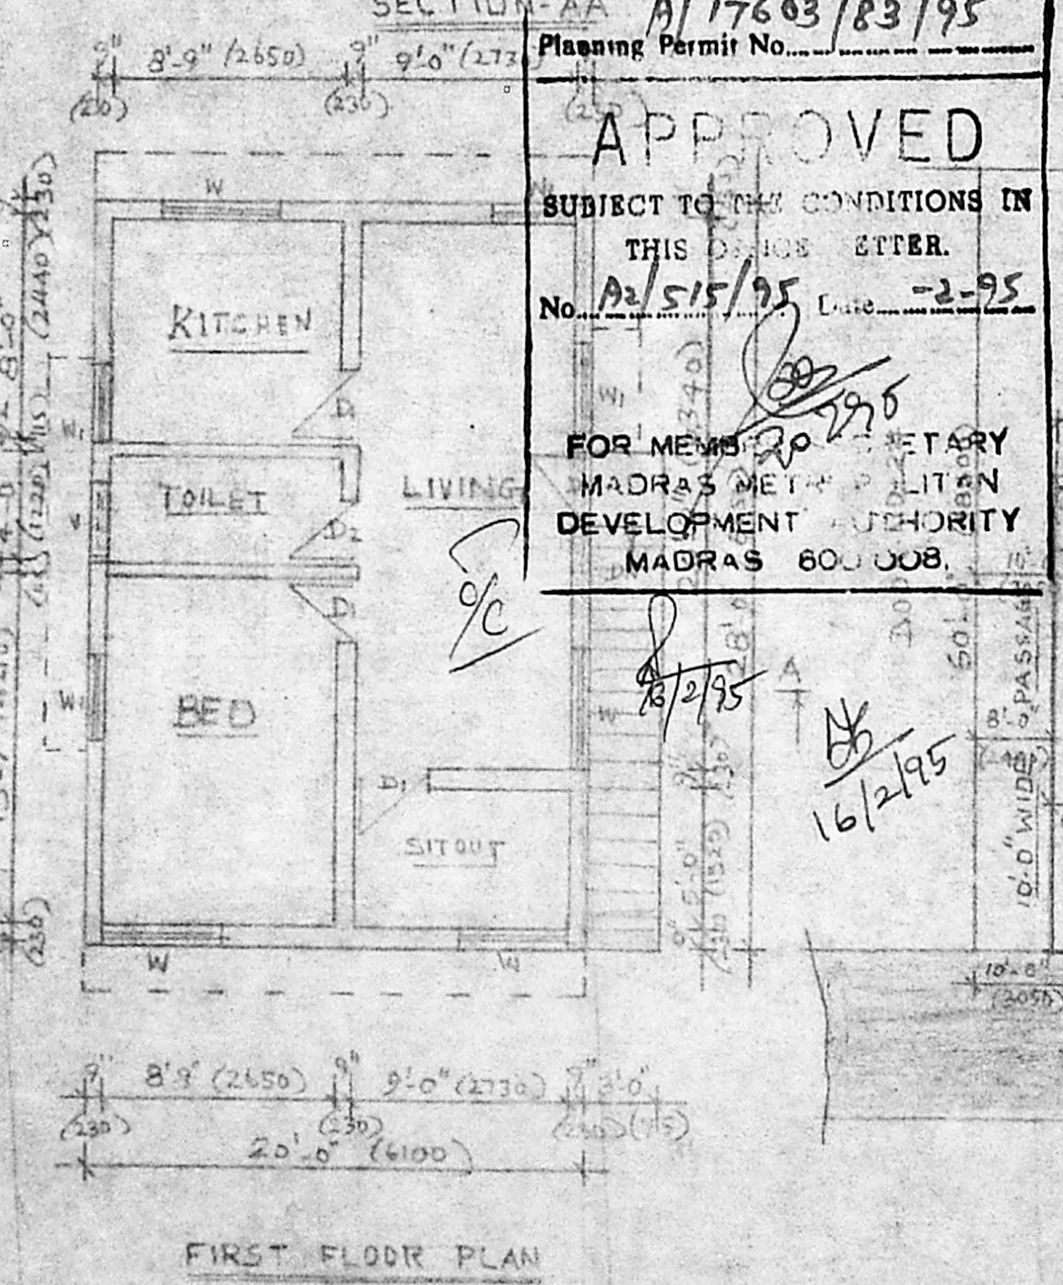 SECTION-AA
A/17603/83/95
Planning Permit No.
APPROVED
SUBJECT TO THE CONDITIONS IN
THIS OFFICE LETTER.
No. A2/515/95 Date -2-95
FOR MEMBER SECRETARY
MADRAS METROPOLITAN
DEVELOPMENT AUTHORITY
MADRAS 600 008.
9" 8'-9" (2650) 9" 9'-0" (273
(230) (230) (230)
W
KITCHEN
D1
W1
W1
TOILET
D2
V
LIVING
D1
O/C
16/2/95
16/2/95
A
BED
W1
W
D1
SITOUT
W
W
8'-0"
(2440) (230)
4'-0"
(1220) (115)
(230)
(340)
28'
5'-0"
(1520) (230)
(230)
60'
10'-0" WIDE PASSAGE
8'-0"
10'-0"
(3050)
9" 8'-9" (2650) 9" 9'-0" (2730) 9" 3'-0"
(230) (230) (230)
20'-0" (6100)
FIRST FLOOR PLAN